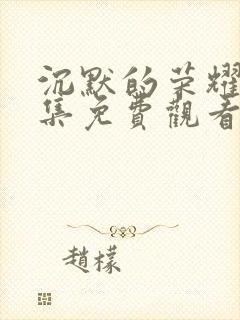 沉默的荣耀
集免費觀看
趙檬